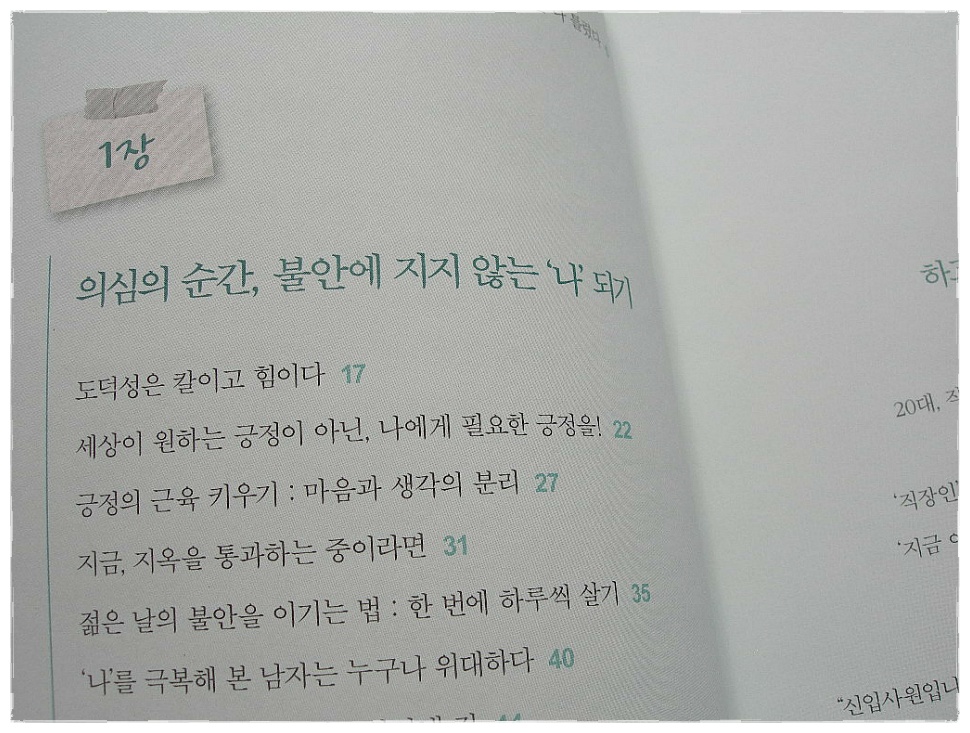 틀렸다
1장
의심의 순간, 불안에 지지 않는 ‘나’ 되기
도덕성은 칼이고 힘이다 17
세상이 원하는 긍정이 아닌, 나에게 필요한 긍정을! 22
긍정의 근육 키우기 : 마음과 생각의 분리 27
지금, 지옥을 통과하는 중이라면 31
젊은 날의 불안을 이기는 법 : 한 번에 하루씩 살기 35
‘나’를 극복해 본 남자는 누구나 위대하다 40
44
20대,
‘직장인’
‘지금
“신입사원입니